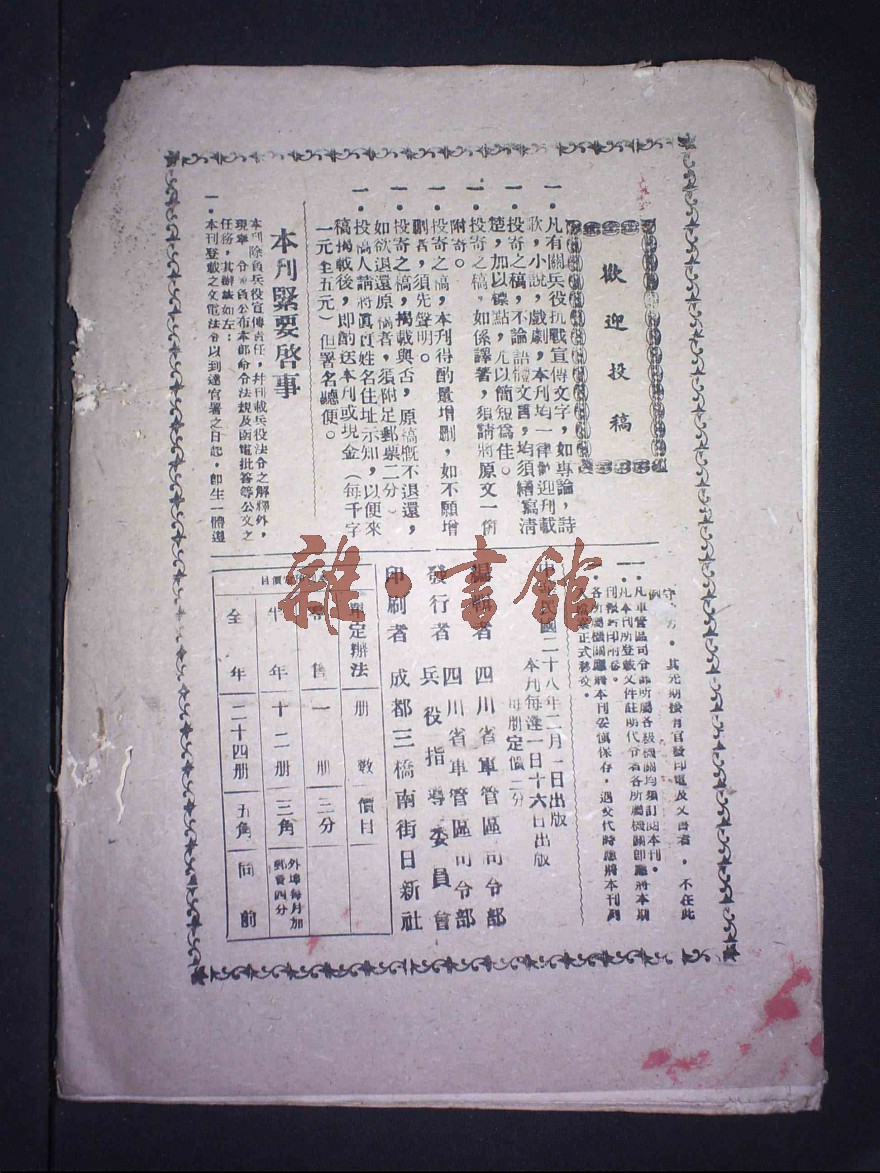 歡迎投稿
一・凡有關兵役抗戰宣傳文字，如專論，詩
歌，小說，戲劇，本刊均一律歡迎刊載
一・投寄之稿，不論語體文言，均須繕寫清
楚，加以標點，尤以簡短爲佳。
一・投寄之稿，如係譯著，須請將原文一倂
附寄。
一・投寄之稿，本刊得酌量增刪，如不願增
刪者，須先聲明。
一・投寄之稿，揭載與否，原稿概不退還，
如欲退還原稿者，須附足郵票二分。
一・投稿人請將眞實姓名住址示知，以便來
稿揭載後，卽酌送本刊或現金（每千字
一元至五元）但署名聽便。
本刊緊要啓事
本刊除負兵役宣傳責任，幷刊載兵役法令之解釋外，
現奉 令兼負公布本部命令法規及函電批答等公文之
任務，其辦法如左：
一・本刊登載之文電法令以到達官署之日起，卽生一體遵
守 力，其先期接有官發印電及文書者，不在此
例
一・凡軍管區司令部所屬各級機關均須訂閱本刊。
一・凡本刊所登載文件註明代令者各所屬機關卽應將本期
刊 印附卷。
一・各所屬機關應將本刊妥愼保存，遇交代時應將本刊列
入 正式移交。
中華民國二十八年二月一日出版
本刊每逢一日十六日出版
每册定價二分
編輯者 四川省軍管區司令部
發行者 四川省軍管區司令部
兵役指導委員會
印刷者 成都三橋南街日新社
價目
訂定辦法 册數 價目
零售 一册 三分
半年 十二册 三角 外埠每月加郵費四分
全年 二十四册 五角 同前
雜・書館